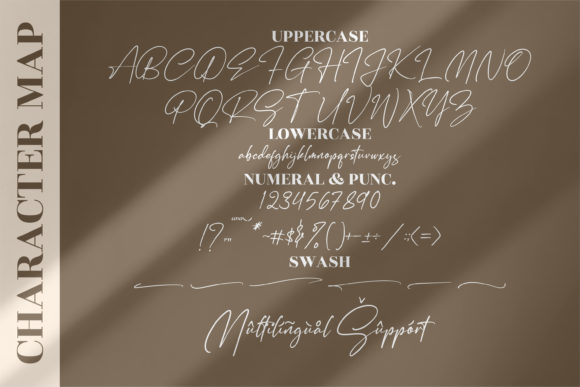 CHARACTER MAP
UPPERCASE
ABCDEFGHIJKLMNO
PQRSTUVWXYZ
LOWERCASE
abcdefghijklmnopqrstuvwxyz
NUMERAL & PUNC.
1234567890
!? * ~#$&%()+-±÷/:;<=>
SWASH
Mûltîlïñgùàl Šûppórt